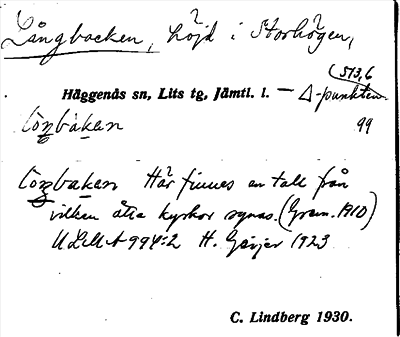 Långbacken, höjd i Storhögen,
(513,6
Häggenås sn, Lits tg, Jämtl. l. — Δ-punkten
99
Här finnes en tall från
vilken åtta kyrkor synas. (Gram. 1910)
ULMA 994:2 H. Geijer 1923
C. Lindberg 1930.